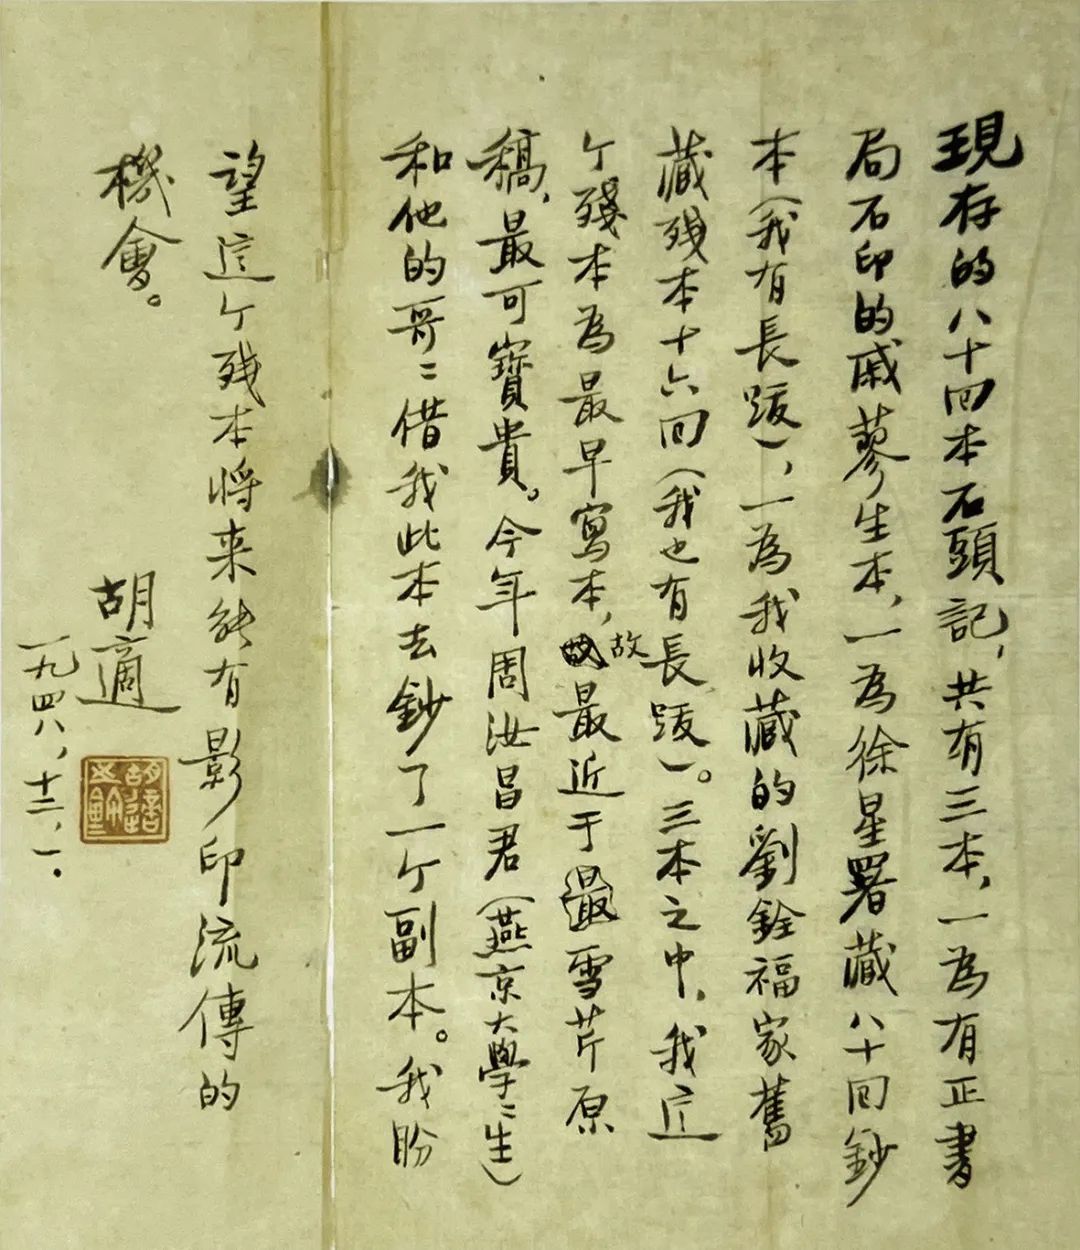 現存的八十四本石頭記，共有三本，一為有正書
局石印的戚蓼生本，一為徐星署藏八十回鈔
本（我有長跋），一為我收藏的劉銓福家舊
藏殘本十六回（我也有長跋）。三本之中，我這
个殘本為最早寫本，故最近于雪芹原
稿，最可寶貴。今年周汝昌君（燕京大學々生）
和他的哥々借我此本去鈔了一个副本。我盼
望這个残本将来能有影印流傳的
機會。
胡適
一九四八，十二，一．
胡適之印